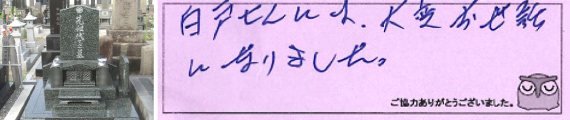 白戸さんには、大変お世話
になりました。
ご協力ありがとうございました。